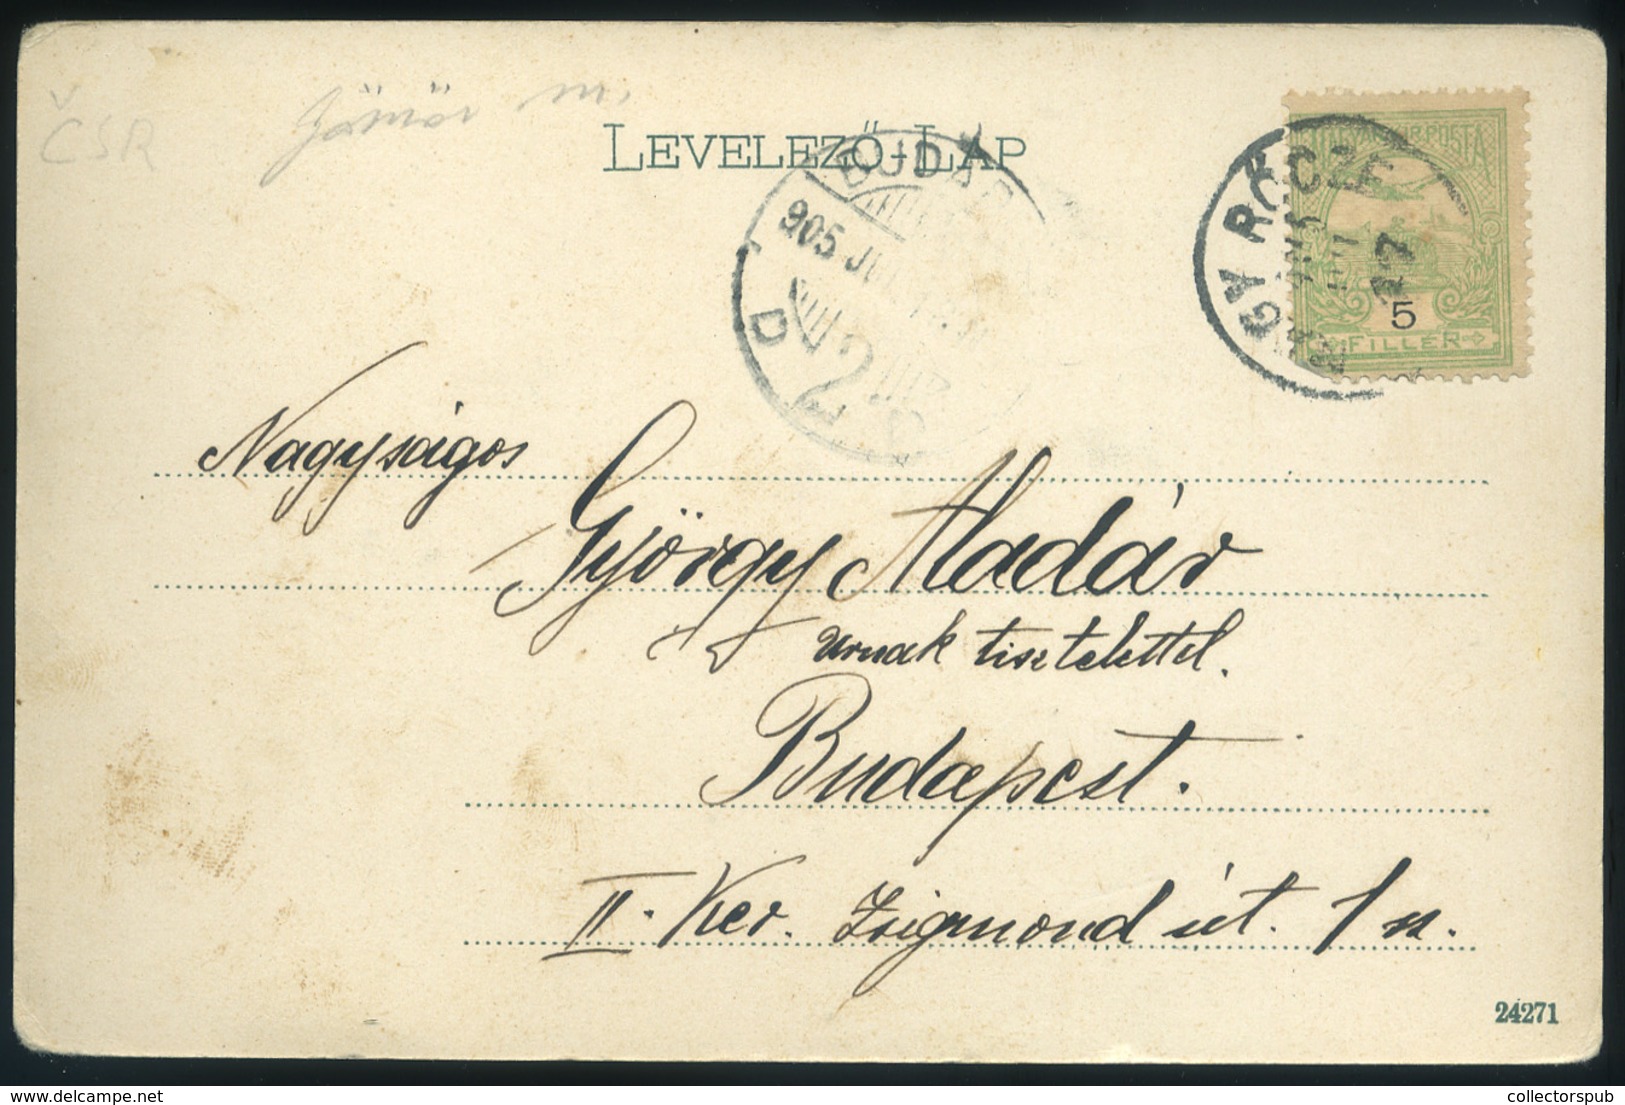 ČSR
Gömör m.
LEVELEZŐ-LAP
BUDAP
905 JU
D
2
MAGYAR KIR. POSTA
5
FILLER
NAGY RŐCZE
17
Nagyságos
György Aladár
urnak tisztelettel.
Budapest.
II. Ker. Zsigmond út. 1 sz.
24271
delcampe.net
collectorspub